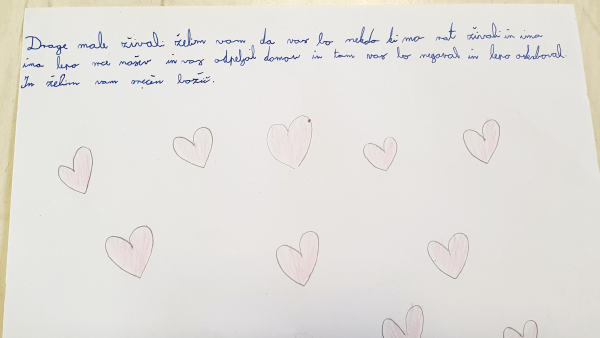 Drage male živali želim vam da vas bo nekdo ki ma rat živali in ima
ima lepo srce našev in vas odpeljal domov in tam vas bo negoval in lepo oskrboval.
In želim vam srečen božič.